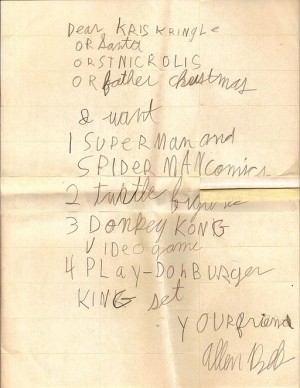 Dear KRIS KRINGLE
OR Santa
OR ST NICROLIS
OR father chustmas
I want
1 SUPERMAN and
SPIDER MAN comics
2 turtle
3 DONKEY KONG
VIDEO game
4 PLAY-DOH BURGER
KING set
YOUR friend
Allen